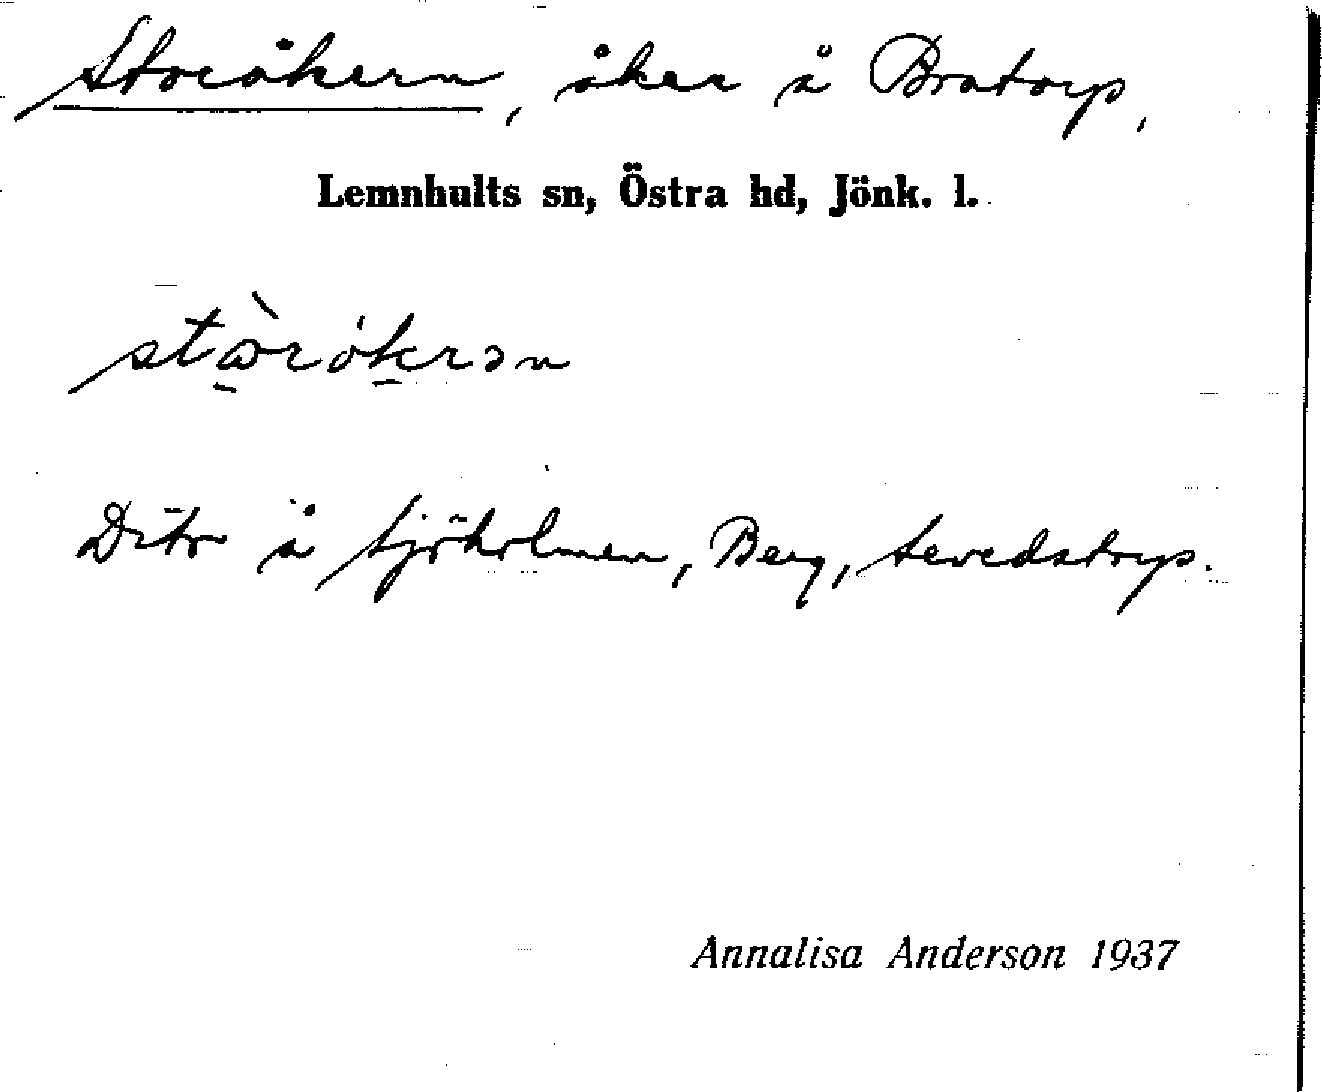 Storåkern, åker å Bratorp,
Lemnhults sn, Östra hd, Jönk. l.
Dito å Sjöholmen, Berg, Sevedstorp.
Annalisa Anderson 1937